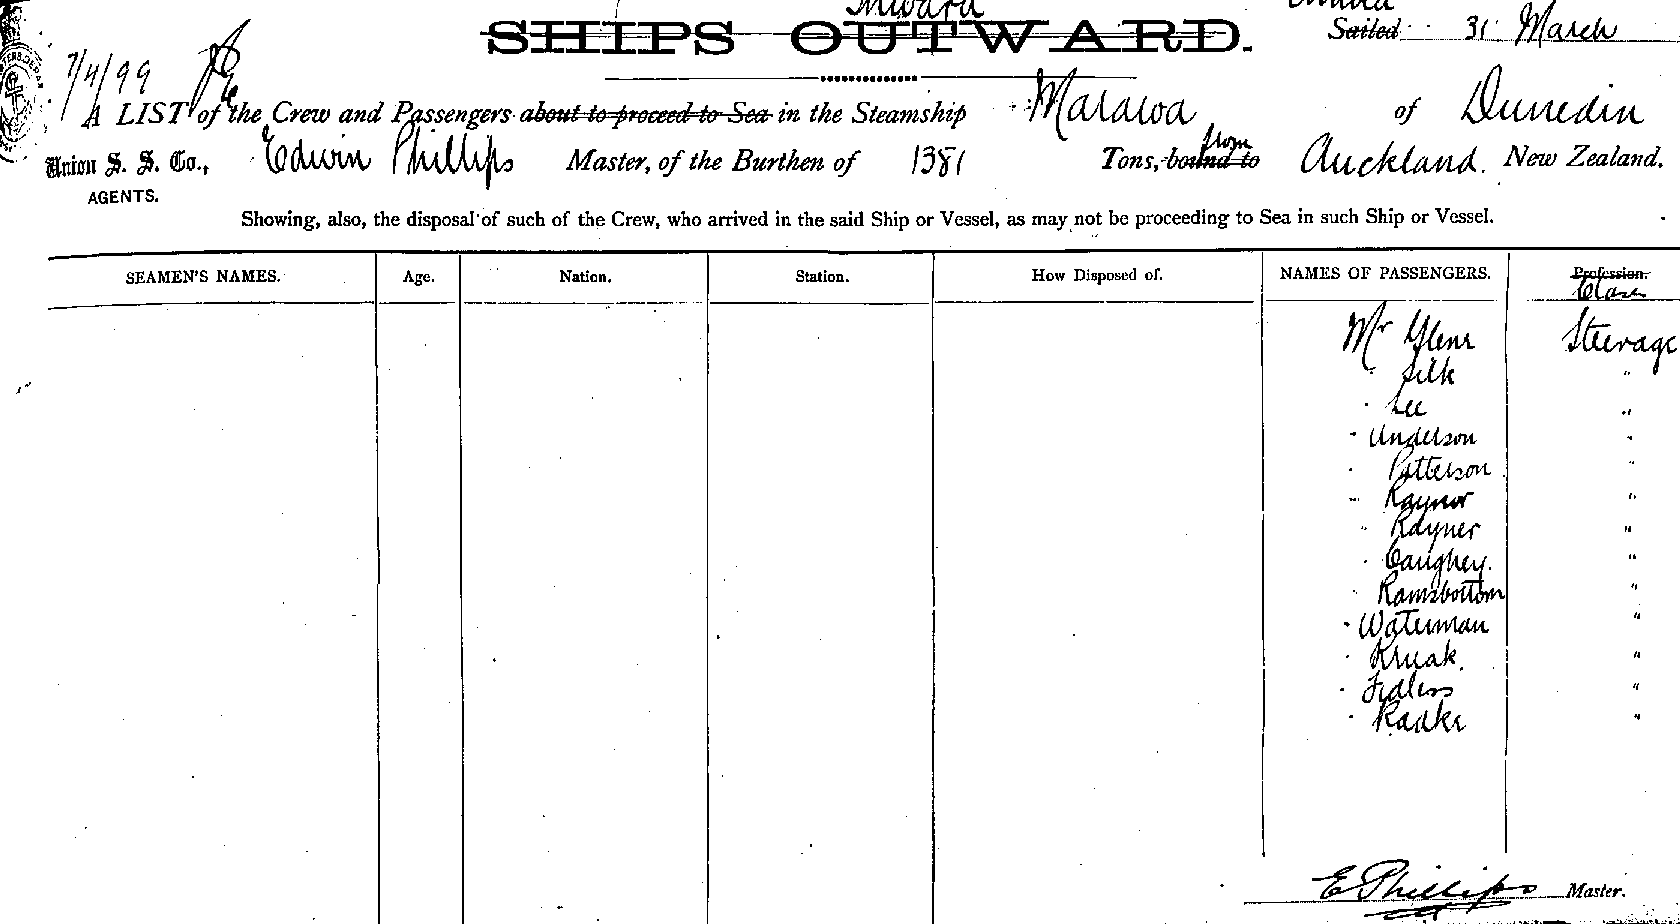 Inward
SHIPS OUTWARD.
Sailed 31 March
7/4/99
A LIST of the Crew and Passengers about to proceed to Sea in the Steamship Mararoa of Dunedin
from
Union S. S. Co., Edwin Phillips Master, of the Burthen of 1381 Tons, bound to Auckland. New Zealand.
AGENTS.
Showing, also, the disposal of such of the Crew, who arrived in the said Ship or Vessel, as may not be proceeding to Sea in such Ship or Vessel.
SEAMEN'S NAMES. Age. Nation. Station. How Disposed of. NAMES OF PASSENGERS. Profession.
Class
Mr Glenn Steerage
" Silk "
" Lee "
" Anderson "
" Patterson "
" Raynor "
" Rayner "
" Caughey. "
" Ramsbottom "
" Waterman "
" Kruak. "
" Fidlers "
" Radke "
E Phillips Master.